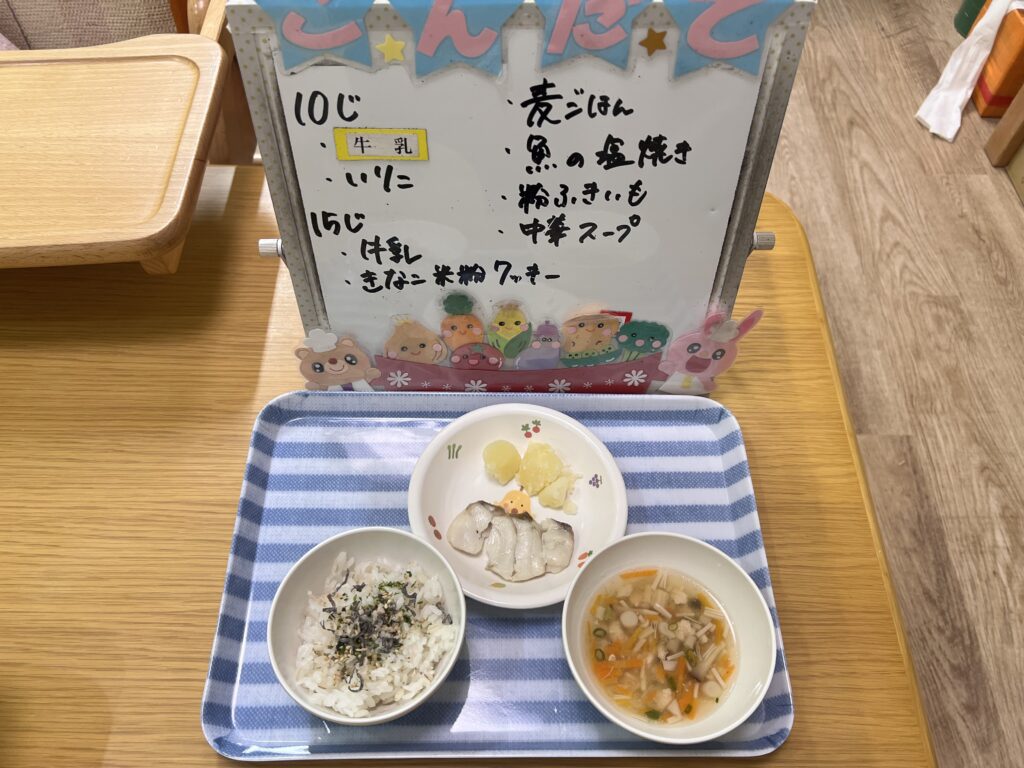 こんだて
10じ
・牛乳
・いりこ
15じ
・牛乳
・きなこ米粉クッキー
・麦ごはん
・魚の塩焼き
・粉ふきいも
・中華スープ